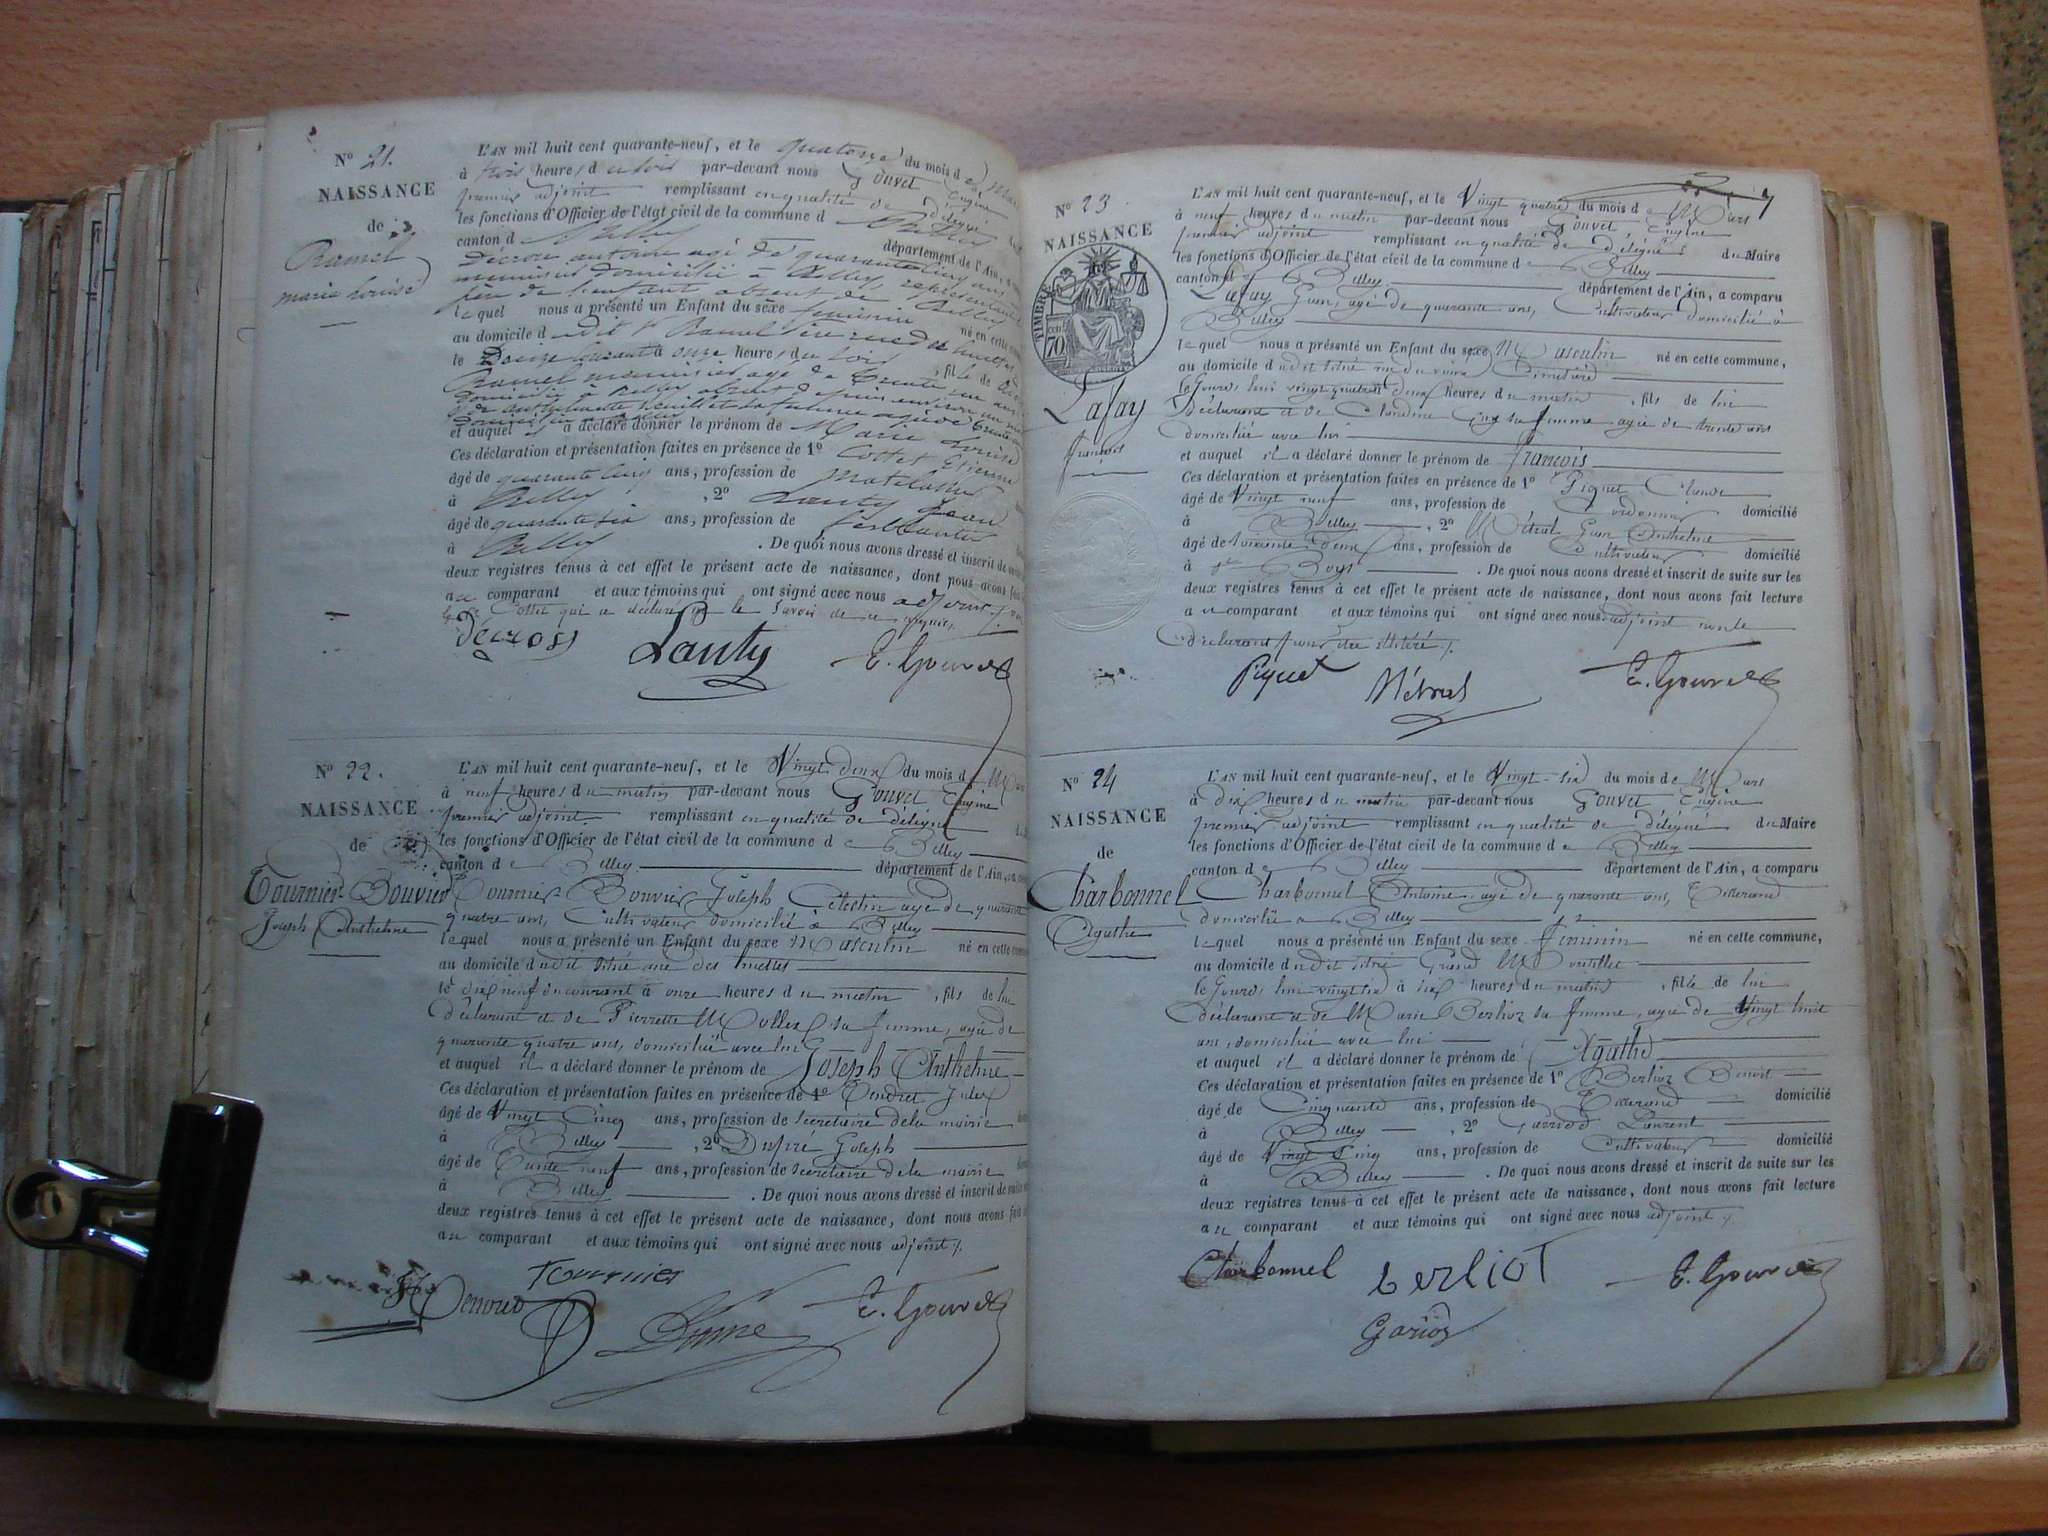 N° 21.
NAISSANCE
de
Ramel
marie Louise
L'AN mil huit cent quarante-neuf, et le quatorze du mois de Mars
à trois heures du soir par-devant nous Gouvet Eugène
premier adjoint remplissant en qualité de délégué
les fonctions d'Officier de l'état civil de la commune d Belley
canton d Belley département de l'Ain, a
Décroso antoine agé de quarante cinq ans
menuisier domicilié à Belley, représentant
père de l'enfant absent de Belley
lequel nous a présenté un Enfant du sexe féminin né en cette
au domicile dudit Sr Ramel père rue des
le Douze courant à onze heures du soir, fille de
Ramel menuisier agé de trente un ans
domicilié à Belley absent depuis environ un mois
et auquel il a déclaré donner le prénom de Marie Louise
Ces déclaration et présentation faites en présence de 1° Cottet Etienne
âgé de quarante cinq ans, profession de Matelassier
à Belley, 2° Lanty Jean
âgé de quarante six ans, profession de ferblantier
à Belley. De quoi nous avons dressé et inscrit de suite
deux registres tenus à cet effet le présent acte de naissance, dont nous avons fait
au comparant et aux témoins qui ont signé avec nous adjoint
le Sr Cottet qui a déclaré ne le savoir de ce requis.
Décroso Lanty E. Gouvet
N° 22.
NAISSANCE
de
Tournier-Bouvier
Joseph Anthelme
L'AN mil huit cent quarante-neuf, et le Vingt deux du mois de Mars
à neuf heures du matin par-devant nous Gouvet Eugène
premier adjoint remplissant en qualité de délégué
les fonctions d'Officier de l'état civil de la commune de Belley
canton de Belley département de l'Ain, a
Tournier Bouvier Joseph Célestin agé de quarante
quatre ans, Cultivateur domicilié à Belley
lequel nous a présenté un Enfant du sexe Masculin né en cette
au domicile dudit situé rue des
le dix neuf du courant à onze heures du matin, fils de lui
déclarant et de Pierrette Mollex sa femme, agée de
quarante quatre ans, domiciliée avec lui
et auquel il a déclaré donner le prénom de Joseph Anthelme
Ces déclaration et présentation faites en présence de 1° Jules
âgé de Vingt Cinq ans, profession de secrétaire de la mairie
à Belley, 2° Dupré Joseph
âgé de Trente neuf ans, profession de secrétaire de la mairie
à Belley. De quoi nous avons dressé et inscrit de suite
deux registres tenus à cet effet le présent acte de naissance, dont nous avons fait
au comparant et aux témoins qui ont signé avec nous adjoint
Tournier
E. Gouvet
N° 23.
NAISSANCE
TIMBRE
70
Lafay
françois
L'AN mil huit cent quarante-neuf, et le Vingt quatre du mois de Mars
à neuf heures du matin par-devant nous Gouvet, Eugène
premier adjoint remplissant en qualité de délégué du Maire
les fonctions d'Officier de l'état civil de la commune de Belley
canton de Belley département de l'Ain, a comparu
Lafay Jean, agé de quarante ans, Cultivateur domicilié à
Belley
lequel nous a présenté un Enfant du sexe Masculin né en cette commune,
au domicile dudit situé rue du vieux Cimetière
le Jourd'hui vingt quatre à deux heures du matin, fils de lui
déclarant et de Claudine sa femme agée de trente ans
domiciliée avec lui
et auquel il a déclaré donner le prénom de françois
Ces déclaration et présentation faites en présence de 1° Piquet
âgé de Vingt neuf ans, profession de Cordonnier domicilié
à Belley, 2° Métral Jean Anthelme
âgé de soixante deux ans, profession de Cultivateur domicilié
à. De quoi nous avons dressé et inscrit de suite sur les
deux registres tenus à cet effet le présent acte de naissance, dont nous avons fait lecture
au comparant et aux témoins qui ont signé avec nous adjoint non le
déclarant pour être illitéré
Piquet Métral E. Gouvet
N° 24
NAISSANCE
de
Charbonnel
Agathe
L'AN mil huit cent quarante-neuf, et le Vingt-six du mois de Mars
à dix heures du matin par-devant nous Gouvet Eugène
premier adjoint remplissant en qualité de délégué du Maire
les fonctions d'Officier de l'état civil de la commune de Belley
canton de Belley département de l'Ain, a comparu
Charbonnel Antoine agé de quarante ans, Tisserand
domicilié à Belley
lequel nous a présenté un Enfant du sexe féminin né en cette commune,
au domicile dudit situé Grand
le Jourd'hui vingt six à six heures du matin, fille de lui
déclarant et de Marie Berlioz sa femme, agée de Vingt huit
ans, domiciliée avec lui
et auquel il a déclaré donner le prénom de Agathe
Ces déclaration et présentation faites en présence de 1° Berlioz Benoit
âgé de Cinquante ans, profession de Tisserand domicilié
à Belley, 2° Garriod Laurent
âgé de Vingt Cinq ans, profession de Cultivateur domicilié
à Belley. De quoi nous avons dressé et inscrit de suite sur les
deux registres tenus à cet effet le présent acte de naissance, dont nous avons fait lecture
au comparant et aux témoins qui ont signé avec nous adjoint
Charbonnel berliot E. Gouvet
Gariod